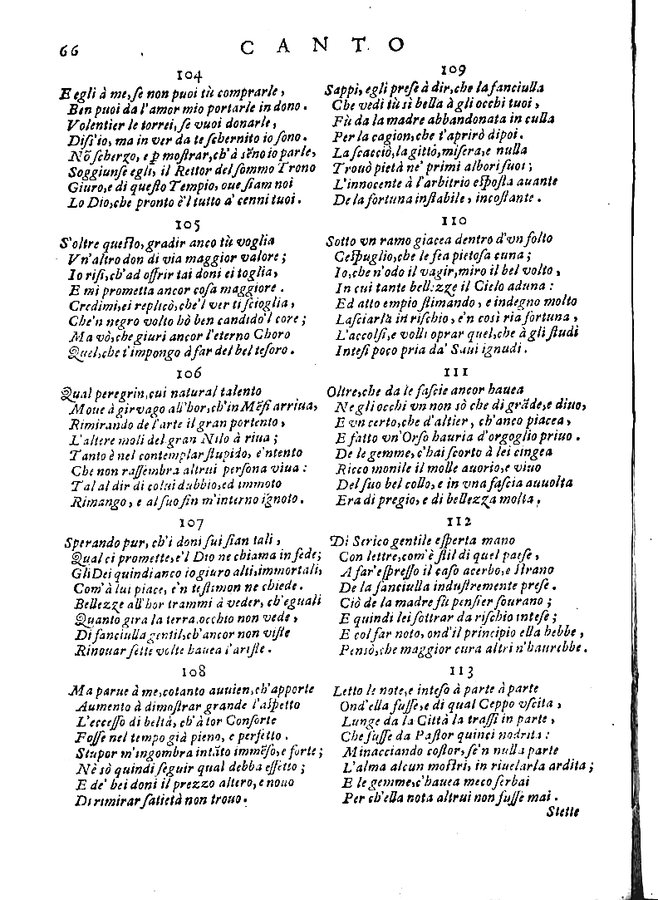 66 CANTO
104
E egli à me, se non puoi tù comprarle,
Ben puoi da l'amor mio portarle in dono.
Volentier le torrei, se vuoi donarle,
Diss'io, ma in ver da te schernito io sono.
Nõ scherzo, e ꝑ mostrar, ch'à sẽno io parle,
Soggiunse egli, il Rettor del sommo Trono
Giuro, e di questo Tempio, oue siam noi
Lo Dio, che pronto è'l tutto a' cenni tuoi.
105
S'oltre questo, gradir anco tù voglia
Vn'altro don di via maggior valore;
Io risi, ch'ad offrir tai doni ei toglia,
E mi prometta ancor cosa maggiore.
Credimi, ei replicò, che'l ver ti scioglia,
Che'n negro volto hò ben candido'l core;
Ma vò, che giuri ancor l'eterno Choro
Quel, che t'impongo à far del bel tesoro.
106
Qual peregrin, cui natural talento
Moue à gir vago all'hor, ch'in Mẽfi arriua,
Rimirando de l'arte il gran portento,
L'altere moli del gran Nilo à riua;
Tanto è nel contemplar stupido, e'ntento
Che non rassembra altrui persona viua:
Tal al dir di colui dubbio, ed immoto
Rimango, e al suo fin m'interno ignoto.
107
Sperando pur, ch'i doni sui sian tali,
Qual ci promette, e'l Dio ne chiama in fede;
Gli Dei quindi anco io giuro alti, immortali,
Com'à lui piace, e'n testimon ne chiede.
Bellezze all'hor trammi à veder, ch'eguali
Quanto gira la terra, occhio non vede,
Di fanciulla gentil, ch'ancor non viste
Rinouar sette volte hauea l'ariste.
108
Ma parue à me, cotanto auuien, ch'apporte
Aumento à dimostrar grande l'aspetto
L'eccesso di beltà, ch'à tor Consorte
Fosse nel tempo già pieno, e perfetto.
Stupor m'ingombra intãto immẽso, e forte;
Nè sò quindi seguir qual debba effetto;
E de' bei doni il prezzo altero, e nouo
Di rimirar satietà non trouo.
109
Sappi, egli prese à dir, che la fanciulla
Che vedi tù sì bella à gli occhi tuoi,
Fù da la madre abbandonata in culla
Per la cagion, che t'aprirò dipoi.
La scacciò, la gittò, misera, e nulla
Trouò pietà ne' primi albori suoi;
L'innocente à l'arbitrio esposta auante
De la fortuna instabile, incostante.
110
Sotto vn ramo giacea dentro d'vn folto
Cespuglio, che le fea pietosa cuna;
Io, che n'odo il vagir, miro il bel volto,
In cui tante bellezze il Cielo aduna:
Ed atto empio stimando, e indegno molto
Lasciarla in rischio, e'n così ria fortuna,
L'accolsi, e volli oprar quel, che à gli studi
Intesi poco pria da' Saui ignudi.
111
Oltre, che da le fascie ancor hauea
Ne gli occhi vn non sò che di grãde, e diuo,
E vn certo, che d'altier, ch'anco piacea,
E fatto vn'Orso hauria d'orgoglio priuo.
De le gemme, c'hai scorto à lei cingea
Ricco monile il molle auorio, e viuo
Del suo bel collo, e in vna fascia auuolta
Era di pregio, e di bellezza molta.
112
Di Serico gentile esperta mano
Con lettre, com'è stil di quel paese,
A far'espresso il caso acerbo, e strano
De la fanciulla industremente prese.
Ciò de la madre fù pensier sourano;
E quindi lei sottrar da rischio intese;
E col far noto, ond'il principio ella hebbe,
Pensò, che maggior cura altri n'haurebbe.
113
Letto le note, e inteso à parte à parte
Ond'ella fusse, e di qual Ceppo vscita,
Lunge da la Città la trassi in parte,
Che fusse da Pastor quinci nodrita:
Minacciando costor, se'n nulla parte
L'alma alcun mostri, in riuelarla ardita;
E le gemme, c'hauea meco serbai
Per ch'ella nota altrui non fusse mai.
Stette